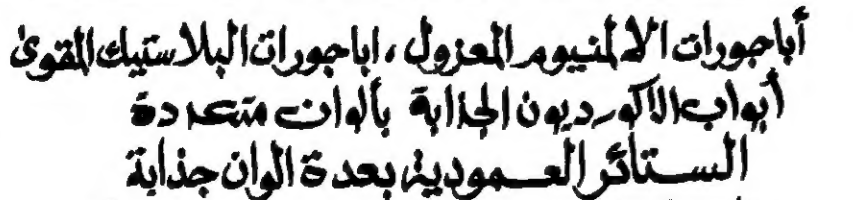 أباجورات الالمنيوم المعزول ، اباجورات البلاستيك المقوى
أبواب الاكورديون الجذابة بألوان متعددة
الستائر العمودية بعدة الوان جذابة